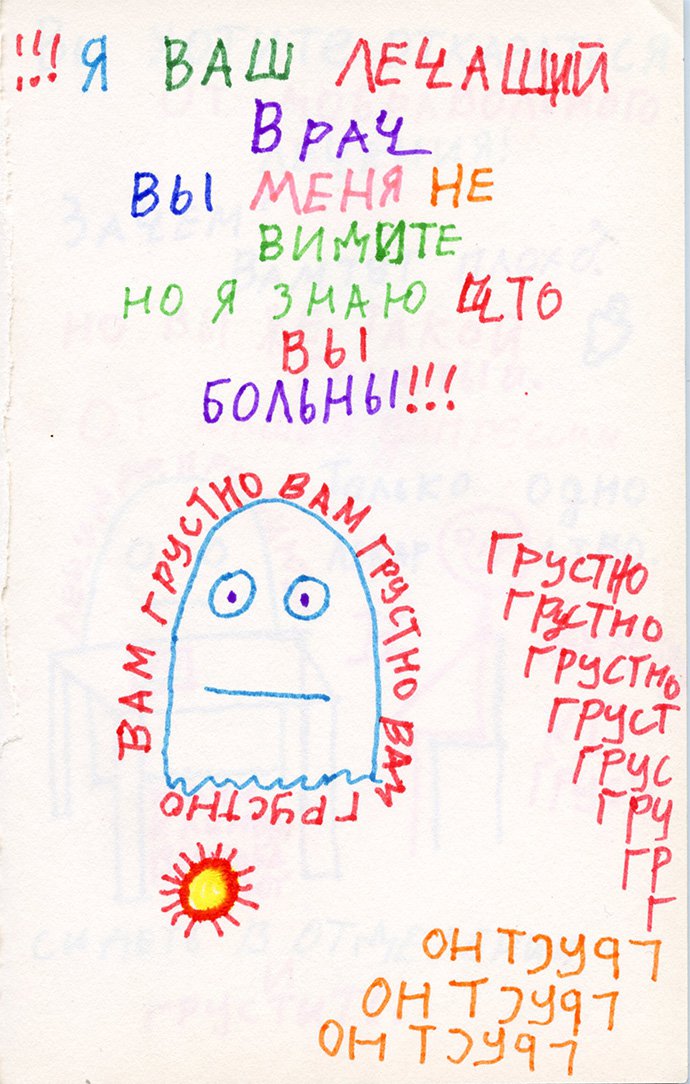 !!! Я ВАШ ЛЕЧАЩИЙ
ВРАЧ
ВЫ МЕНЯ НЕ
ВИДИТЕ
НО Я ЗНАЮ ЧТО
ВЫ
БОЛЬНЫ!!!
ВАМ ГРУСТНО ВАМ ГРУСТНО ВАМ ГРУСТНО
ГРУСТНО
ГРУСТНО
ГРУСТНО
ГРУСТ
ГРУС
ГРУ
ГР
Г
ГРУСТНО
ГРУСТНО
ГРУСТНО